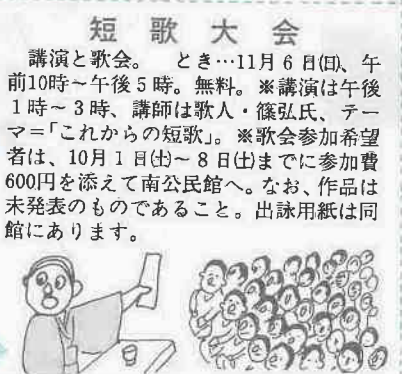 短歌大会
講演と歌会。　とき…11月6日(日)、午
前10時～午後5時。無料。※講演は午後
1時～3時、講師は歌人・篠弘氏、テー
マ＝「これからの短歌」。※歌会参加希望
者は、10月1日(土)～8日(土)までに参加費
600円を添えて南公民館へ。なお、作品は
未発表のものであること。出詠用紙は同
館にあります。